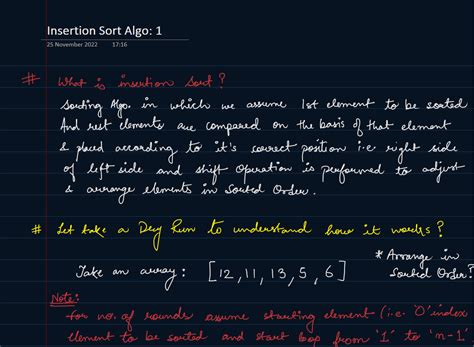 Insertion Sort Algo: 1
25 November 2022 17:16
# What is insertion Sort?
Sorting Algo. in which we assume 1st element to be sorted
And rest elements are compared on the basis of that element
& placed according to it's correct position i.e right side
of left side and shift operation is performed to adjust
& arrange elements in Sorted Order.
# Let take a Dry Run to understand how it works?
* Arrange in
Take an array: [12, 11, 13, 5, 6] Sorted Order?
Note:
for no. of rounds assume starting element (i.e. '0' index
element to be sorted and start loop from '1' to 'n-1